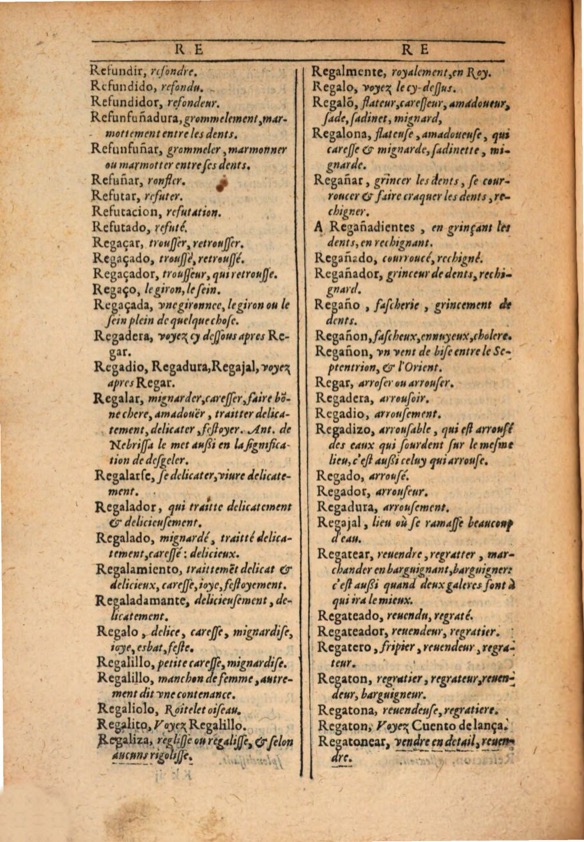 R E
Refundir, refondre.
Refundido, refondu.
Refundidor, refondeur.
Refunfuñadura, grommelement, mar-
mottement entre les dents.
Refunfuñar, grommeler, marmonner
ou marmotter entre ses dents.
Refuñar, ronfler.
Refutar, refuter.
Refutacion, refutation.
Refutado, refuté.
Regaçar, trousser, retrousser.
Regaçado, troussé, retroussé.
Regaçador, trousseur, qui retrousse.
Regaço, le giron, le sein.
Regaçada, vne gironnee, le giron ou le
sein plein de quelque chose.
Regadera, voyez cy dessous apres Re-
gar.
Regadio, Regadura, Regajal, voyez
apres Regar.
Regalar, mignarder, caresser, faire bõ-
ne chere, amadoüer, traitter delica-
tement, delicater, festoyer. Ant. de
Nebrissa le met aussi en la significa-
tion de desgeler.
Regalarse, se delicater, viure delicate-
ment.
Regalador, qui traitte delicatement
& delicieusement.
Regalado, mignardé, traitté delica-
tement, caressé: delicieux.
Regalamiento, traittemẽt delicat &
delicieux, caresse, ioye, festoyement.
Regaladamante, delicieusement, de-
licatement.
Regalo, delice, caresse, mignardise,
ioye, esbat, feste.
Regalillo, petite caresse, mignardise.
Regalillo, manchon de femme, autre-
ment dit vne contenance.
Regaliolo, Roitelet oiseau.
Regalito, Voyez Regalillo.
Regaliza, reglisse ou regalisse, & selon
aucuns rigolisse.
R E
Regalmente, royalement, en Roy.
Regalo, voyez le cy-dessus.
Regalõ, flateur, caresseur, amadoueur,
sade, sadinet, mignard,
Regalona, flateuse, amadoueuse, qui
caresse & mignarde, sadinette, mi-
gnarde.
Regañar, grincer les dents, se cour-
roucer & faire craquer les dents, re-
chigner.
A Regañadientes, en grinçant les
dents, en rechignant.
Regañado, courroucé, rechigné.
Regañador, grinceur de dents, rechi-
gnard.
Regaño, fascherie, grincement de
dents.
Regañon, fascheux, ennuyeux, cholere.
Regañon, vn vent de bise entre le Se-
ptentrion, & l'Orient.
Regar, arroser ou arrouser.
Regadera, arrousoir.
Regadio, arrousement.
Regadizo, arrousable, qui est arrousé
des eaux qui sourdent sur le mesme
lieu, c'est aussi celuy qui arrouse.
Regado, arrousé.
Regador, arrouseur.
Regadura, arrousement.
Regajal, lieu où se ramasse beaucoup
d'eau.
Regatear, reuendre, regratter, mar-
chander en barguignant, barguigner:
c'est aussi quand deux galeres font à
qui ira le mieux.
Regateado, reuendu, regraté.
Regateador, reuendeur, regratier.
Regatero, fripier, reuendeur, regra-
teur.
Regaton, regratier, regrateur, reuen-
deur, barguigneur.
Regatona, reuendeuse, regratiere.
Regaton, Voyez Cuento de lança.
Regatonear, vendre en detail, reuen-
dre.